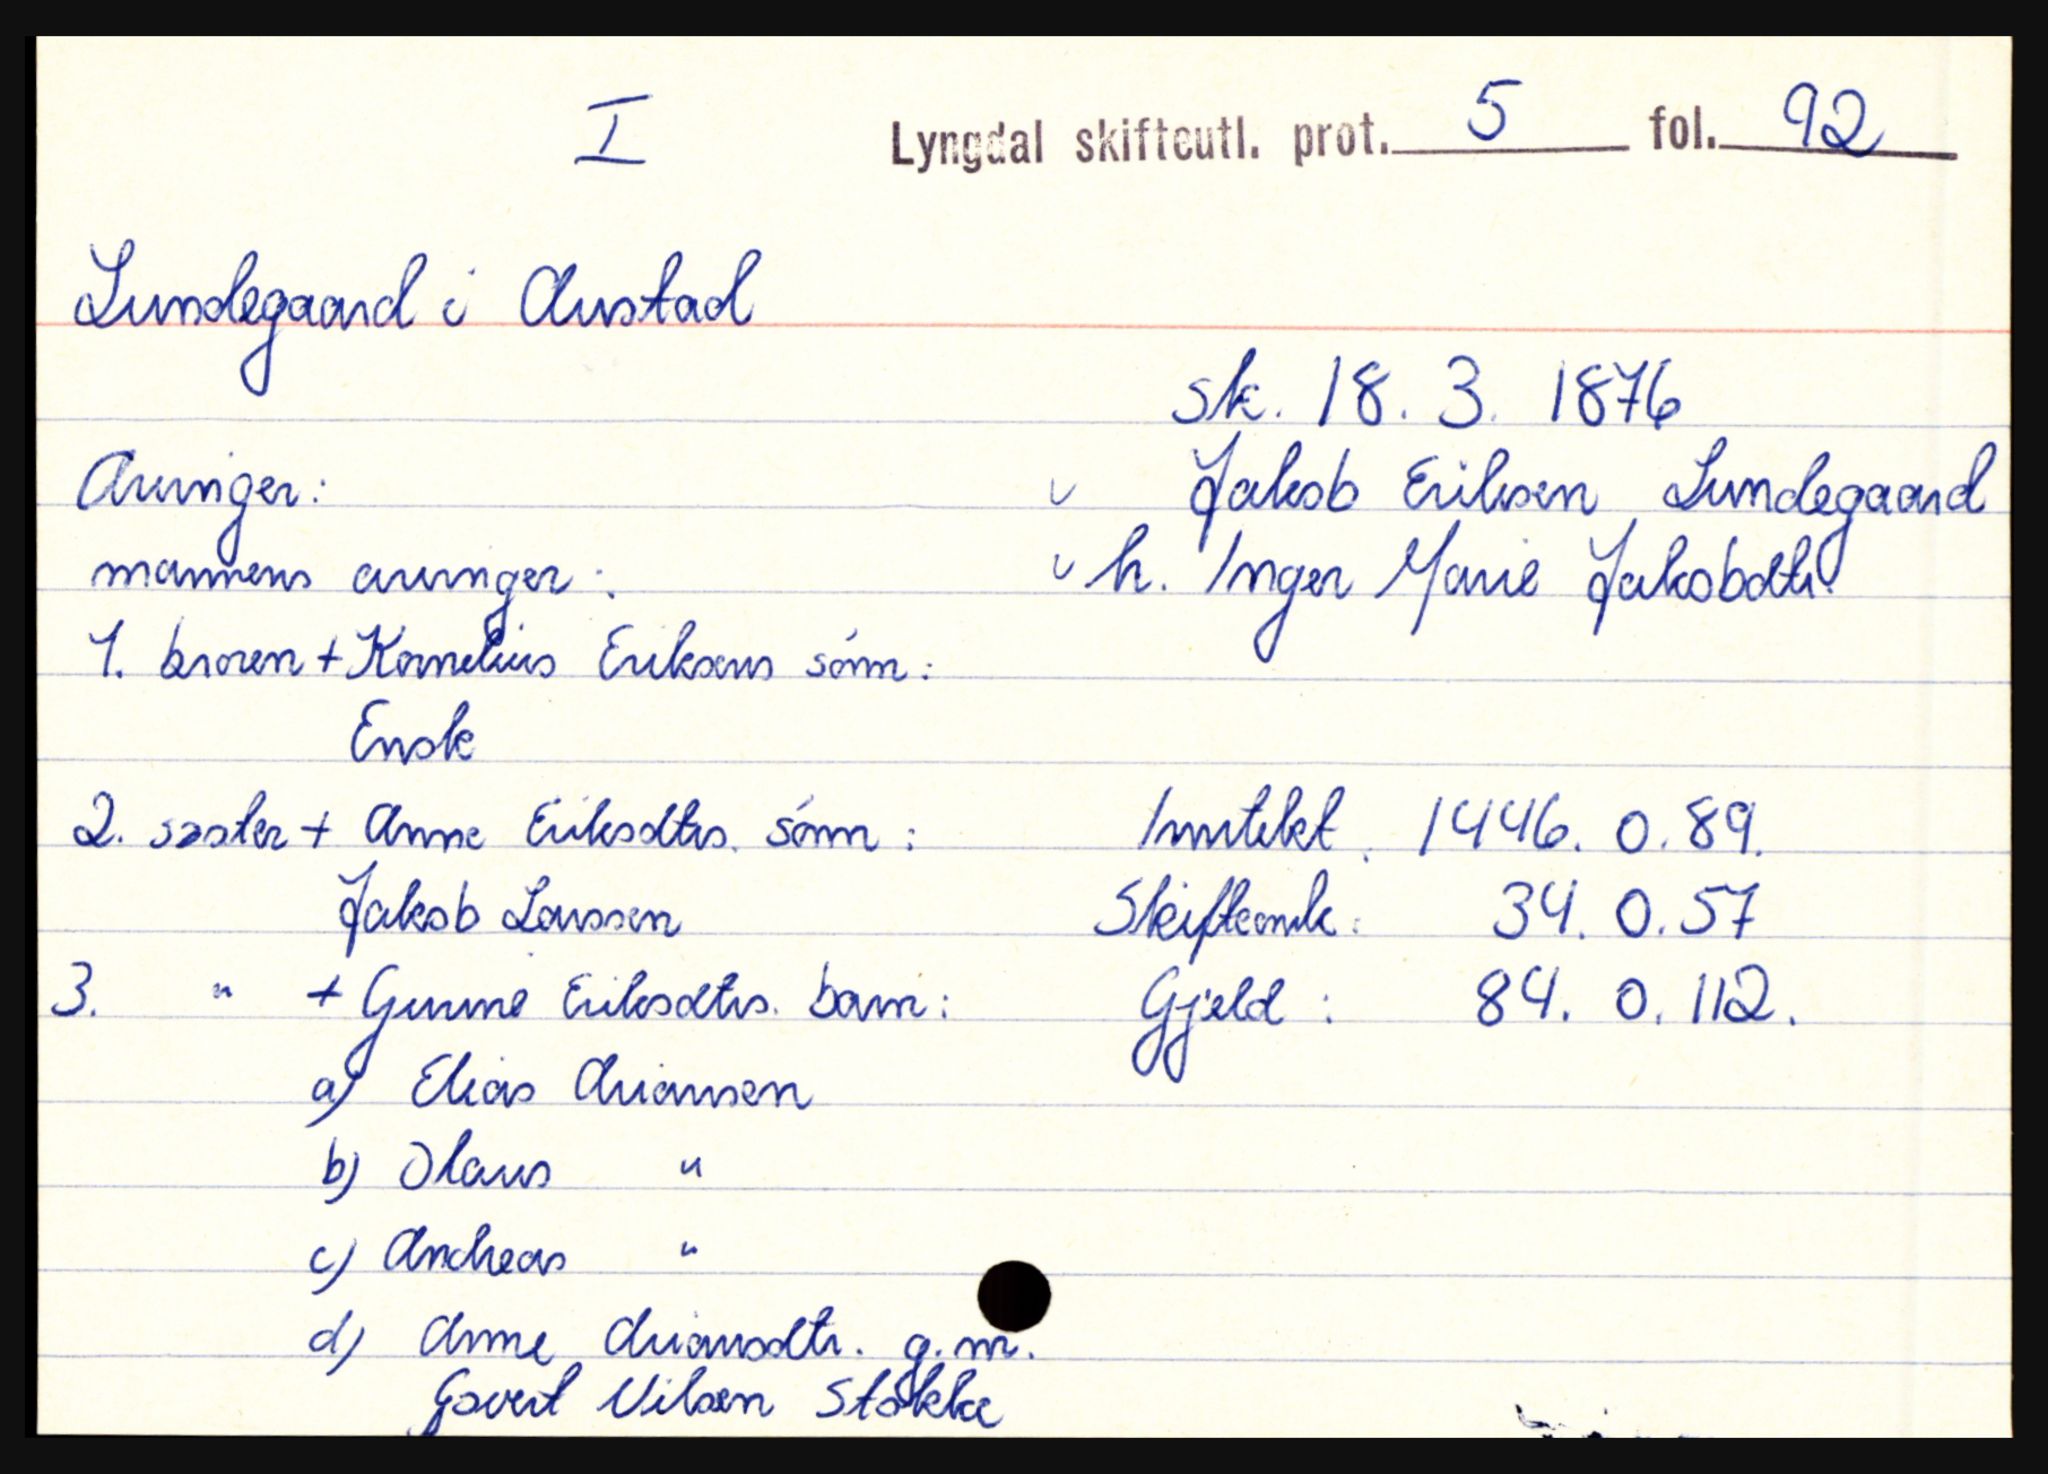 I
Lyngdal skifteutl. prot. 5 fol. 92
Lundegaard i Austad
sk. 18. 3. 1876
Arvinger:
v Jakob Eriksen Lundegaard
mannens arvinger:
v h. Inger Marie Jakobdtr.
1. broren + Kornelius Eriksens sönn:
Ensk
2. søster + Anne Eriksdtrs. sönn:
Inntekt: 1446. 0. 89.
Jakob Larssen
Skifteomk: 34. 0. 57
3. " + Gunne Eriksdtrs. barn:
Gjeld: 84. 0. 112.
a) Elias Ariansen
b) Olaus "
c) Andreas "
d) Anne Ariansdtr. g.m.
Govert Nilsen Stökke